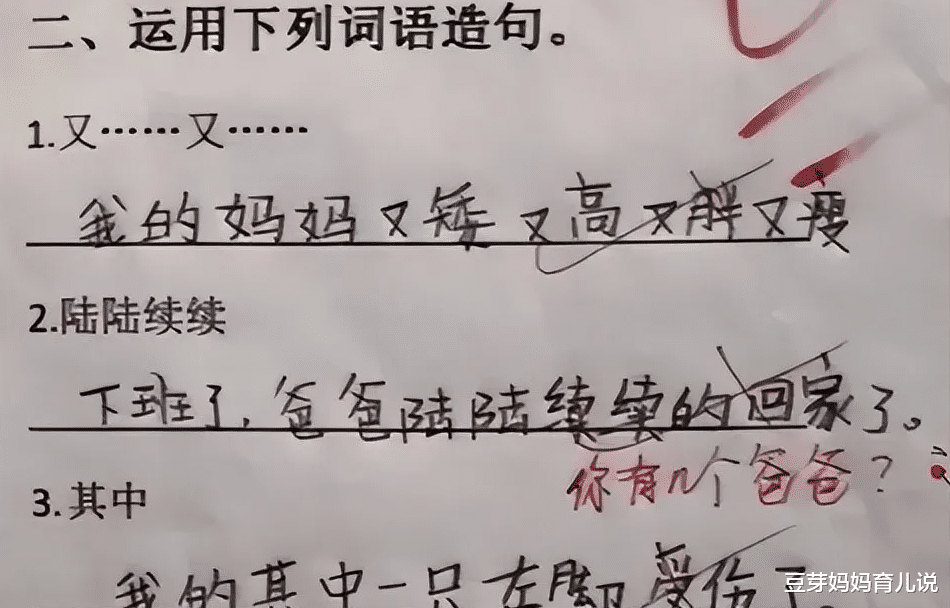 二、运用下列词语造句。
1.又……又……
我的妈妈又矮又高又胖又瘦
2.陆陆续续
下班了,爸爸陆陆续续的回家了。
你有几个爸爸?
3.其中
我的其中一只左脚受伤了
豆芽妈妈育儿说